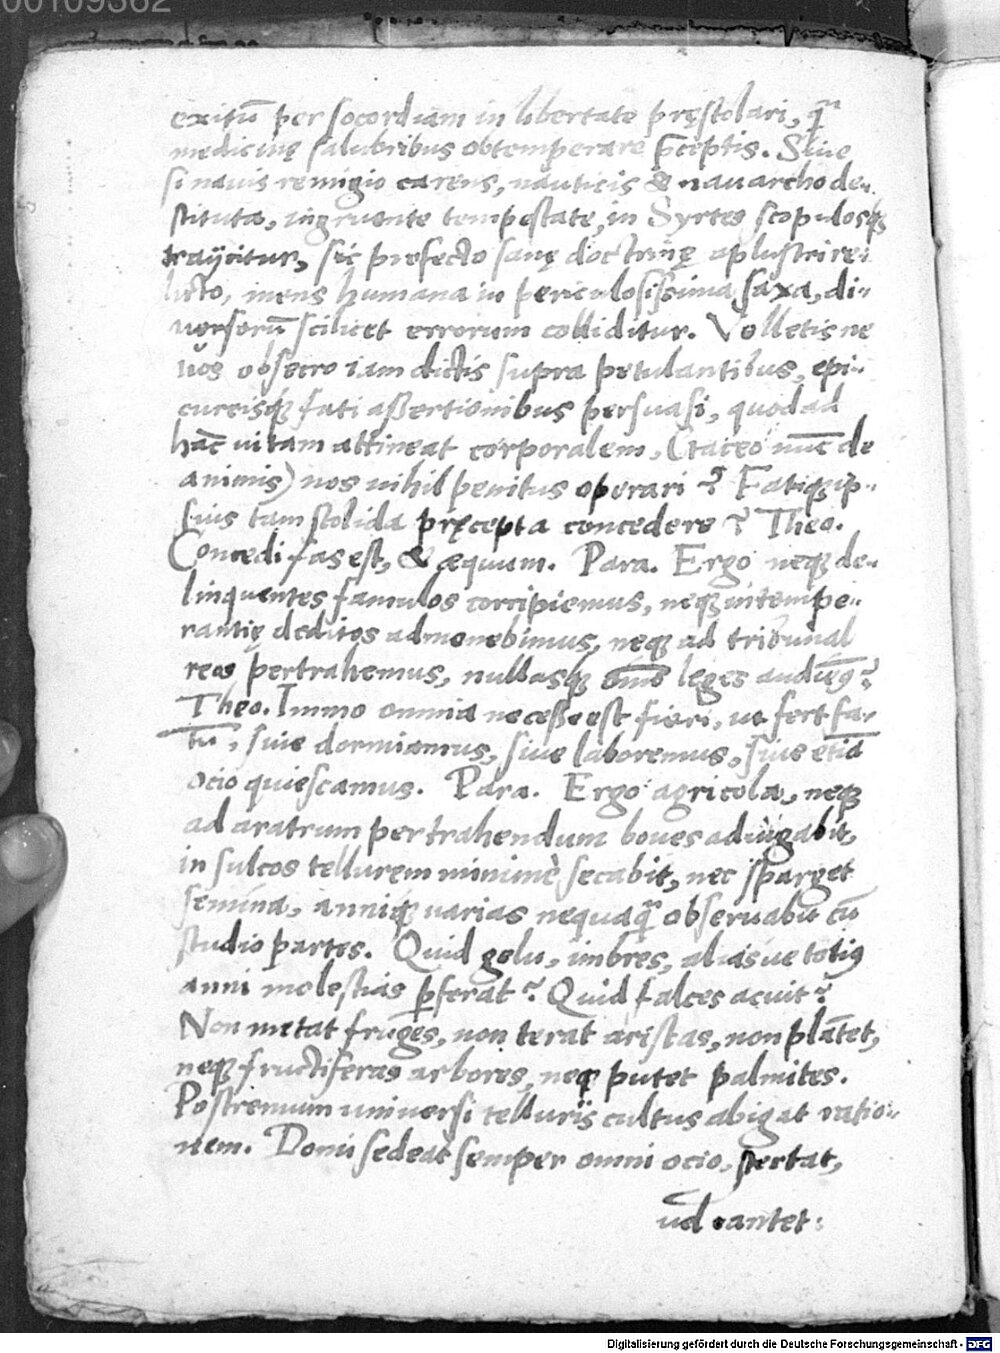 00109362
exitū per socordiam in libertate pręstolari, q̃
medicinę salubribus obtemperare p̄ceptis. Siue
si nauis remigio carens, nauticis & nauarcho de-
stituta, ingruente tempestate, in Syrtes scopulosq;
trayicitur, sic profecto sanę doctrinę aplustri re-
licto, mens humana in periculosissima saxa, di-
uersorū scilicet errorum colliditur. Velletis ne
uos obsecro iam dictis supra petulantibus, epi-
cureisq; fati aßertionibus persuasi, quod ad
hāc uitam attineat corporalem, (taceo nūc de
animis) nos nihil penitus operari? Fatiq; ip-
sius tam stolida præcepta concedere? Theo.
Concedi fas est, & æquum. Para. Ergo neq; de-
linquentes famulos corripiemus, neq; intempe-
rantię deditos admonebimus, neq; ad tribunal
reos pertrahemus, nullasq; om̄s leges audiem9?
Theo. Immo omnia neceße est fieri, ut fert fa-
tū, siue dormiamus, siue laboremus, siue etiā
ocio quiescamus. Para. Ergo agricola, neq;
ad aratrum pertrahendum boues adiūgabit,
in sulcos tellurem minimè secabit, nec sparget
semina, anniq; uarias nequaq̃ obseruabit cū
studio partes. Quid gelu, imbres, aliasue toti9
anni molestias p̱ferat? Quid falces acuit?
Non metat fruges, non terat aristas, non plātet,
neq; fructiferas arbores, neq; putet palmites.
Postremum uniuersi telluris cultus abigat ratio-
nem. Domi sedeat semper omni ocio, stertat,
uel cantet:
Digitalisierung gefördert durch die Deutsche Forschungsgemeinschaft - DFG